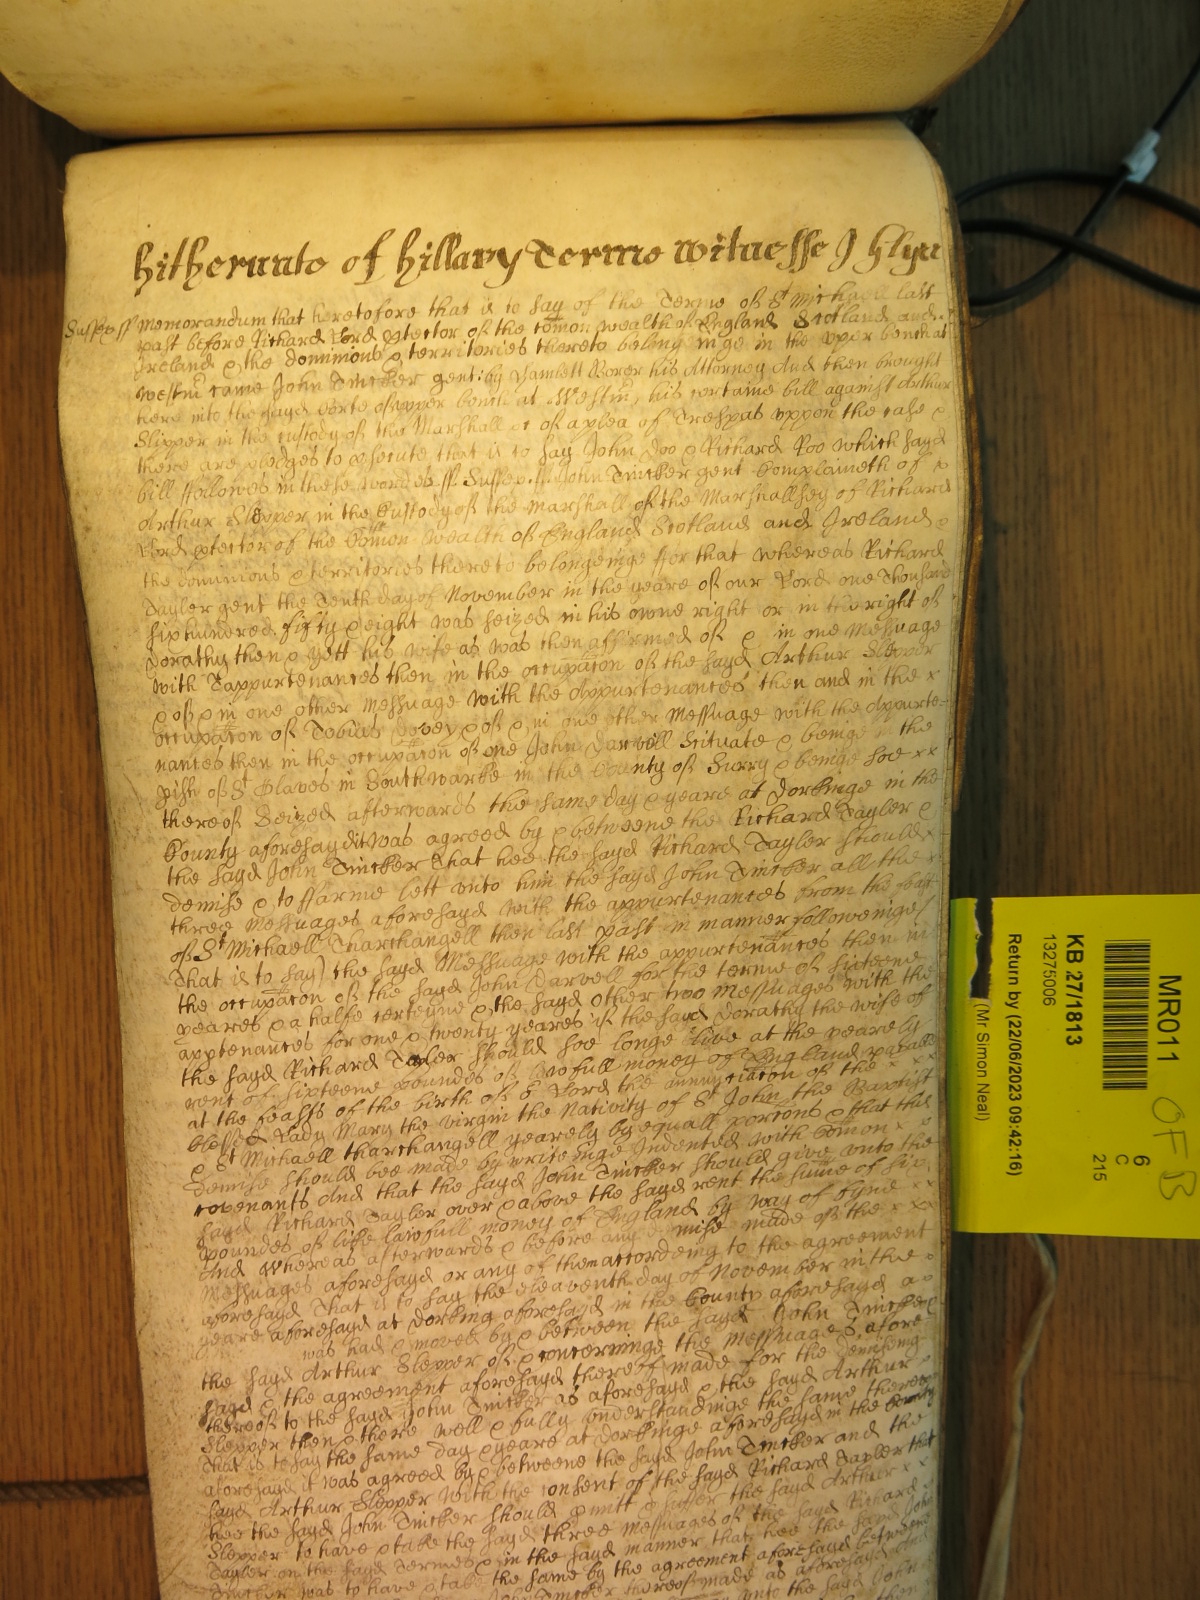 hitherunto of hillary Terme witnesse J Glyn
Sussex ss Memorandum that heretofore that is to say of the Terme of St Michaell last
past before Richard Lord ptector of the comon wealth of England Scotland and
Ireland & the dominions & territories thereto belonginge in the vper bench at
Westmr came John Tincker gent: by Hamlett Borer his Attorney And then brought
here into the sayd Corte of vpper bench at Westmr his certaine bill against Arthur
Slepper in the custody of the Marshall &c of a plea of Trespas vppon the case &
there are pledges to psecute that is to say John Doo & Richard Roo Which sayd
bill followes in these wordes ss Sussex ss John Tincker gent Complaineth of
Arthur Slepper in the Custody of the Marshall of the Marshallsey of Richard
Lord ptector of the Comon wealth of England Scotland and Ireland &
the dominions & territories thereto belongeinge ffor that whereas Richard
Tayler gent the Tenth day of November in the yeare of our Lord one Thousand
six hundred fifty & eight was seized in his owne right or in the right of
dorathy then & yett his wife as was then affirmed of & in one Messuage
with Tappurtenances then in the occupacon of the sayd Arthur Slepper
& of & in one other Messuage with the Appurtenances then and in the
occupacon of Tobias Dovey & of & in one other Messuage with the Appurte-
nances then in the occupacon of one John Darvell Scituate & beinge in the
pish of St Olaves in Southwarke in the County of Surry & beinge soe
thereof Seized afterwards the same day & yeare at Dorkinge in the
County aforesayd it was agreed by & betweene the Richard Tayler &
the sayd John Tincker That hee the sayd Richard Tayler should
demise & to ffarme lett vnto him the sayd John Tincker all the
three Messuages aforesayd with the appurtenances from the feast
of St Michaell Tharchangell then last past in manner followeinge
That is to say) the sayd Messuage with the appurtenances then in
the occupacon of the sayd John Darvell for the terme of sixteene
yeares & a halfe certeyne & the sayd other two Messuages with the
apptenances for one & twenty yeares if the sayd Dorathy the wife of
the sayd Richard Tayler should soe longe live at the yearely
rent of sixteene poundes of lawfull money of England payable
at the feasts of the birth of or Lord the annunciacon of the
blessed Lady Mary the virgin the Nativity of St John the Baptist
& St Michaell tharchangell yearely by equall porcons & that the
demise should bee made by writeinge Indented with Comon
covenants And that the sayd John Tincker should give vnto the
sayd Richard Tayler over & above the sayd rent the sume of six
poundes of like lawfull money of England by way of fyne
And whereas afterwards & before any demise made of the
Messuages aforesayd or any of them accordeing to the agreement
aforesayd That is to say the eleaventh day of November in the
yeare aforesayd at Dorking aforesayd in the County aforesayd a
was had & moved by & between the sayd John Tincker &
the sayd Arthur Slepper of & concerninge the Messuages afore
sayd & the agreement aforesayd thereof made for the demising
thereof to the sayd John Tincker as aforesayd & the sayd Arthur
Slepper then & there well & fully vnderstandinge the same thereupon
That is to say the same day & yeare at Dorkinge aforesayd in the County
aforesayd it was agreed by & betweene the sayd John Tincker and the
sayd Arthur Slepper with the consent of the sayd Richard Tayler that
hee the sayd John Tincker should pmitt & suffer the sayd Arthur
Slepper to have & take the sayd three Messuages of the sayd Richard
Tayler on the sayd Termes & in the sayd manner that hee the sayd John
Tincker was to have & take the same by the agreement aforesayd betweene
MR011
KB 27/1813
13275006
6
C
215
Return by (22/06/2023 09:42:16)
(Mr Simon Neal)
OFB